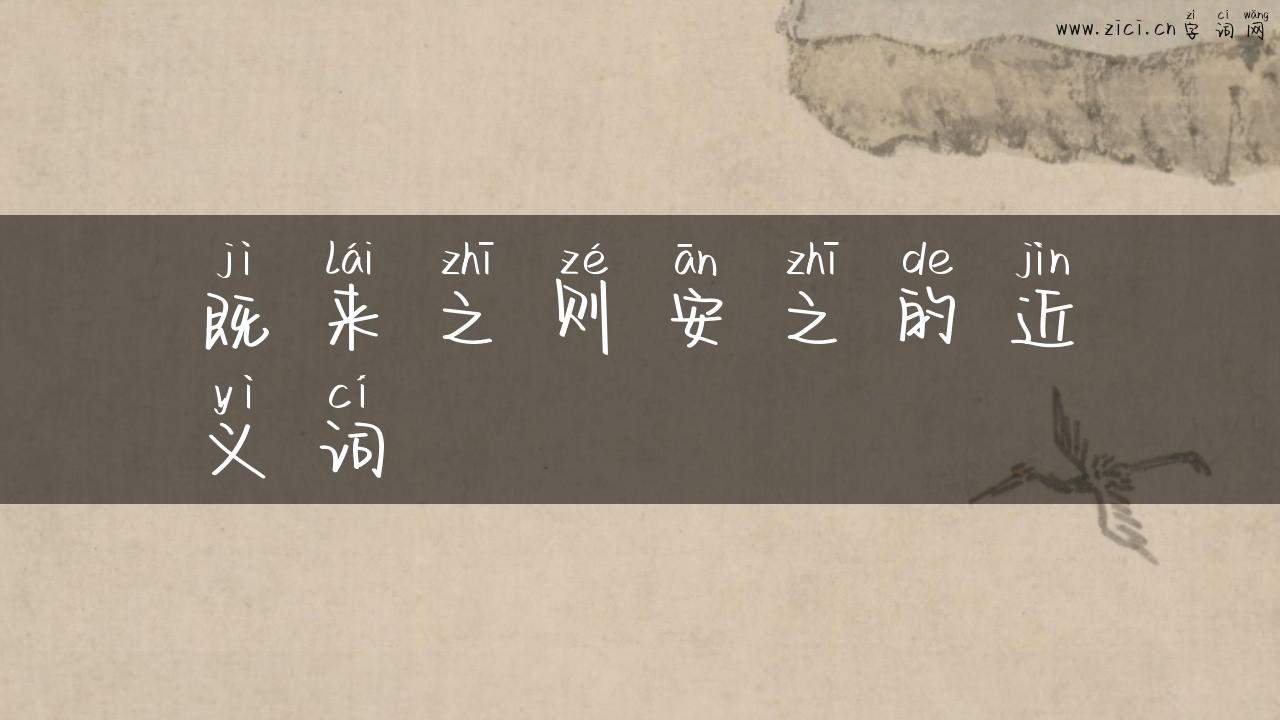 zì cí wǎng
www.zici.cn 字词网
jì lái zhī zé ān zhī de jìn
既来之则安之的近
yì cí
义词